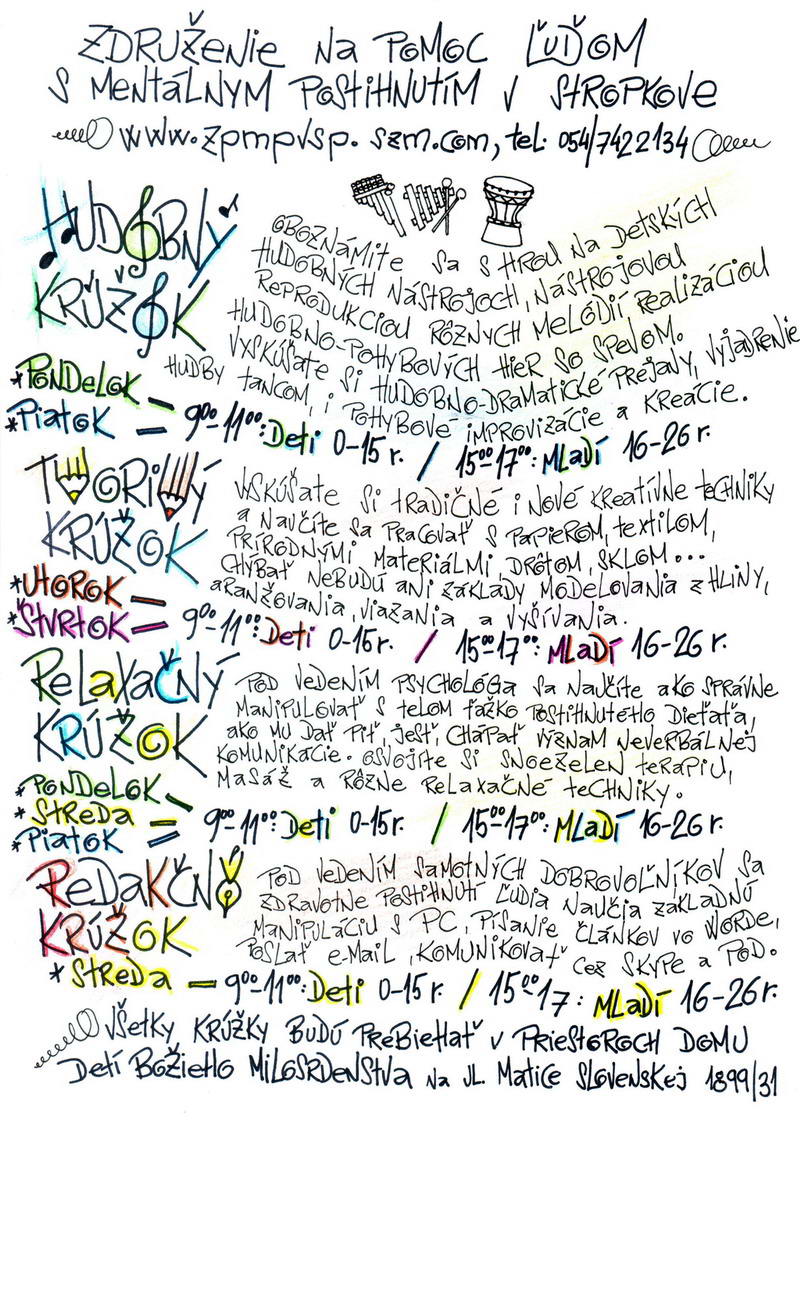 ZDRUŽENIE NA POMOC ĽUĎOM
S MENTÁLNYM POSTIHNUTÍM V STROPKOVE
www.zpmpvsp.szm.com, tel. 054/7422134
HUDOBNÝ
KRÚŽOK
OBOZNÁMITE SA S HROU NA DETSKÝCH
HUDOBNÝCH NÁSTROJOCH, NÁSTROJOVOU
REPRODUKCIOU RÔZNYCH MELÓDIÍ, REALIZÁCIOU
HUDOBNO-POHYBOVÝCH HIER SO SPEVOM.
VYSKÚŠATE SI HUDOBNO-DRAMATICKÉ PREJAVY, VYJADRENIE
HUDBY TANCOM, I POHYBOVÉ IMPROVIZÁCIE A KREÁCIE.
*PONDELOK –
*PIATOK – 9⁰⁰-11⁰⁰: Deti 0-15 r. / 15⁰⁰17⁰⁰: MLADÍ 16-26 r.
TVORIVÝ
KRÚŽOK
VYSKÚŠATE SI TRADIČNÉ I NOVÉ KREATÍVNE TECHNIKY
A NAUČÍTE SA PRACOVAŤ S PAPIEROM, TEXTILOM,
PRÍRODNÝMI MATERIÁLMI, DRÔTOM, SKLOM...
CHÝBAŤ NEBUDÚ ANI ZÁKLADY MODELOVANIA Z HLINY,
ARANŽOVANIA, VIAZANIA A VYŠÍVANIA.
*UTOROK –
*ŠTVRTOK – 9⁰⁰-11⁰⁰: Deti 0-15 r. / 15⁰⁰17⁰⁰: MLADÍ 16-26 r.
RELAXAČNÝ
KRÚŽOK
POD VEDENÍM PSYCHOLÓGA SA NAUČÍTE AKO SPRÁVNE
MANIPULOVAŤ S TELOM ŤAŽKO POSTIHNUTÉHO DIEŤAŤA,
AKO MU DAŤ PIŤ, JESŤ, CHÁPAŤ VÝZNAM NEVERBÁLNEJ
KOMUNIKÁCIE. OSVOJÍTE SI SNOEZELEN TERAPIU,
MASÁŽ A RÔZNE RELAXAČNÉ TECHNIKY.
*PONDELOK –
*STREDA –
*PIATOK – 9⁰⁰-11⁰⁰: Deti 0-15 r. / 15⁰⁰17⁰⁰: MLADÍ 16-26 r.
REDAKČNÝ
KRÚŽOK
POD VEDENÍM SAMOTNÝCH DOBROVOĽNÍKOV SA
ZDRAVOTNE POSTIHNUTÍ ĽUDIA NAUČIA ZÁKLADNÚ
MANIPULÁCIU S PC, PÍSANIE ČLÁNKOV VO WORDE,
POSLAŤ E-MAIL, KOMUNIKOVAŤ CEZ SKYPE A POD.
*STREDA – 9⁰⁰-11⁰⁰: Deti 0-15 r. / 15⁰⁰17: MLADÍ 16-26 r.
VŠETKY KRÚŽKY BUDÚ PREBIEHAŤ V PRIESTOROCH DOMU
DETÍ BOŽIEHO MILOSRDENSTVA NA UL. MATICE SLOVENSKEJ 1899/31